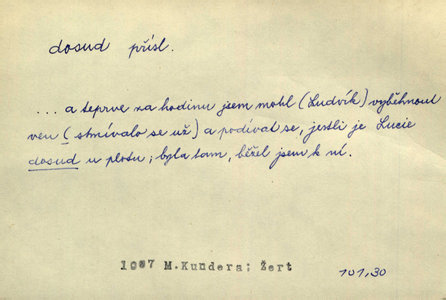 dosud přísl.
... a teprve za hodinu jsem mohl (Ludvík) vyběhnout
ven (stmívalo se už) a podívat se, jestli je Lucie
dosud u plotu; byla tam, běžel jsem k ní.
1967 M.Kundera: Žert
101,30